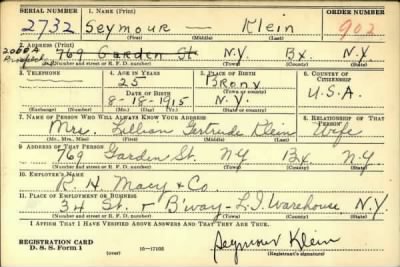 SERIAL NUMBER 1. NAME (Print) ORDER NUMBER
2732 Seymour — Klein 902
(First) (Middle) (Last)
2. ADDRESS (Print)
2000A
Prospect 769 Garden St. N.Y. Bx. N.Y.
(Number and street or R. F. D. number) (Town) (County) (State)
3. TELEPHONE 4. AGE IN YEARS 5. PLACE OF BIRTH 6. COUNTRY OF CITIZENSHIP
25 Bronx
DATE OF BIRTH (Town or county)
8-18-1915 N.Y. U.S.A.
(Exchange) (Number) (Mo.) (Day) (Yr.) (State or country)
7. NAME OF PERSON WHO WILL ALWAYS KNOW YOUR ADDRESS 8. RELATIONSHIP OF THAT PERSON
Mrs. Lillian Gertrude Klein Wife
(Mr., Mrs., Miss) (First) (Middle) (Last)
9. ADDRESS OF THAT PERSON
769 Garden St. N.Y. Bx N.Y
(Number and street or R. F. D. number) (Town) (County) (State)
10. EMPLOYER'S NAME
R. H. Macy & Co.
11. PLACE OF EMPLOYMENT OR BUSINESS
34 St. & B'way - L.I. Warehouse N.Y.
(Number and street or R. F. D. number) (Town) (County) (State)
I AFFIRM THAT I HAVE VERIFIED ABOVE ANSWERS AND THAT THEY ARE TRUE.
REGISTRATION CARD
D. S. S. Form 1 (over) 16—17105 Seymour Klein
(Registrant's signature)